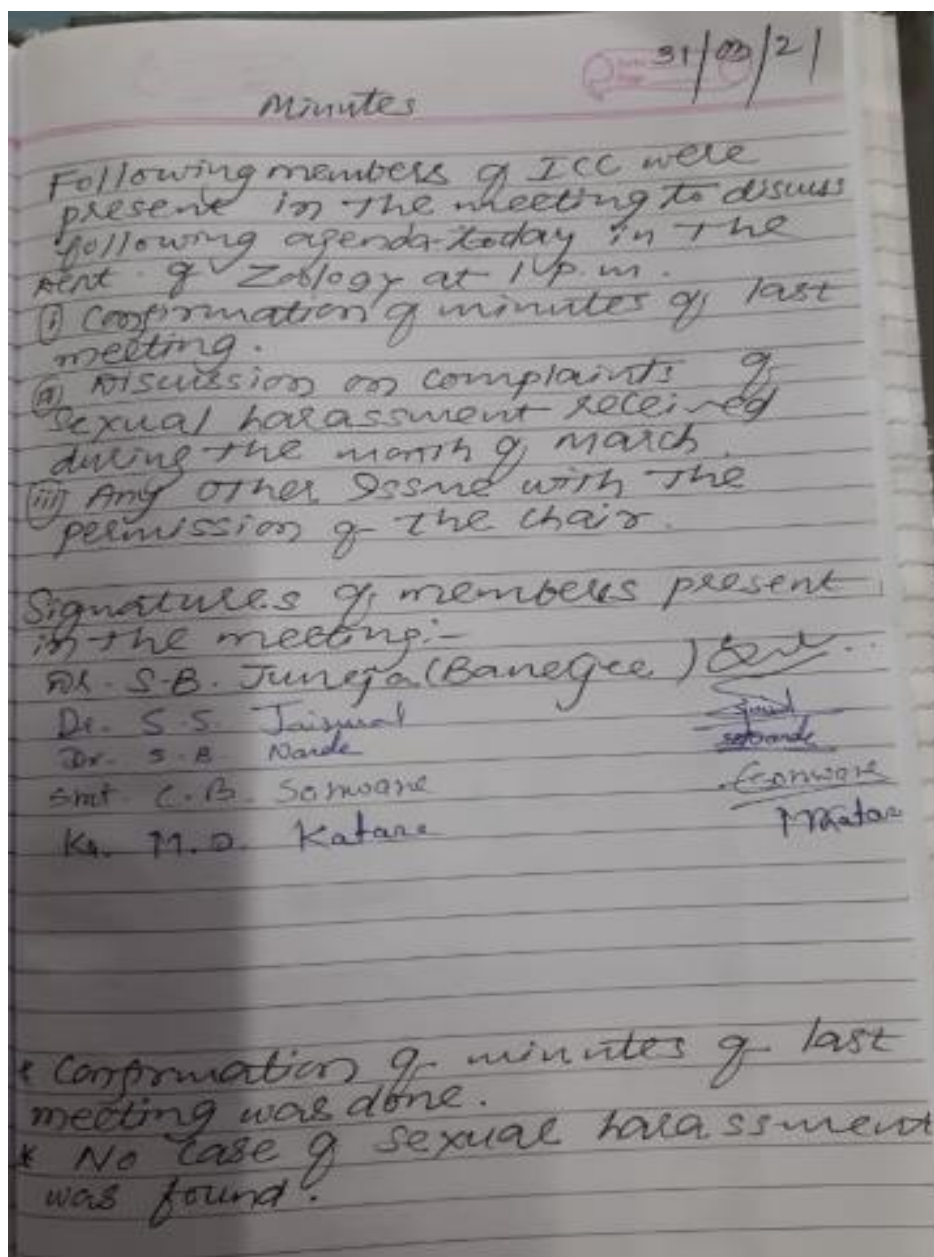 31/03/21
Minutes
Following members of ICC were
present in the meeting to discuss
following agenda today in the
Dept of Zoology at 1 p.m.
(i) Confirmation of minutes of last
meeting.
(ii) Discussion on complaints of
Sexual harassment received
during the month of March.
(iii) Any other Issue with the
permission of the chair.
Signatures of members present
in the meeting:-
Dr. S.B. Juneja (Banerjee)
Dr. S.S. Jaiswal
Dr. S.B. Narde
Smt. C.B. Sonwane
Ku. M.D. Katare
* Confirmation of minutes of last
meeting was done.
* No case of sexual harassment
was found.